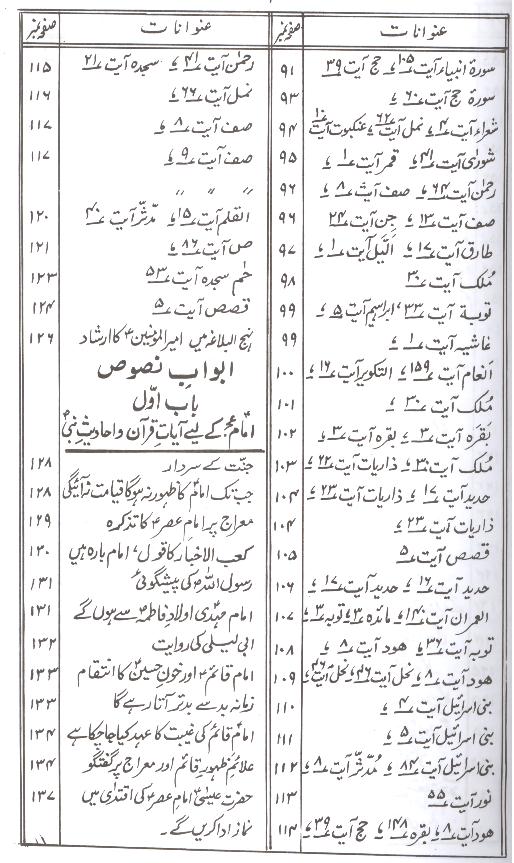 عنوانات صفحہ نمبر
سورۂ انبیاء آیت ۱۰۵، حج آیت ۳۹ ۹۱
سورۂ حج آیت ۶۰، ۹۳
شعراء آیت ۴، نمل آیت ۶۲، عنکبوت آیت ۱۰ ۹۴
شوریٰ آیت ۴۱، قمر آیت ۱، ۹۵
رحمٰن آیت ۶۴، صف آیت ۸، ۹۶
صف آیت ۱۳، جن آیت ۲۴ ۹۶
طارق آیت ۱۷، الّیل آیت ۱، ۹۷
مُلک آیت ۳۰ ۹۸
توبۃ آیت ۳۳، ابراہیم آیت ۵، ۹۹
غاشیہ آیت ۱، ۹۹
انعام آیت ۱۵۹، التکویر آیت ۱۶، ۱۰۰
مُلک آیت ۳۰، ۱۰۱
بقرہ آیت ۳، بقرہ آیت ۳، ۱۰۲
مُلک آیت ۳۰، ذاریات آیت ۲۲، ۱۰۳
حدید آیت ۱۷، ذاریات آیت ۲۳، ۱۰۴
ذاریات آیت ۲۳، ۱۰۴
قصص آیت ۵ ۱۰۵
حدید آیت ۱۶، حدید آیت ۱۷، ۱۰۶
العمران آیت ۱۴۰، مائدہ ۳، توبہ ۳، ۱۰۷
توبہ آیت ۳۶، ھود آیت ۸، ۱۰۸
ھود آیت ۸، نحل آیت ۳۶، نحل آیت ۴۶، ۱۰۹
بنی اسرائیل آیت ۴، ۱۱۰
بنی اسرائیل آیت ۵، ۱۱۱
بنی اسرائیل آیت ۸۴، مُدّثّر آیت ۸، ۱۱۲
نور آیت ۵۵ ۱۱۳
ھود آیت ۸، بقرہ ۱۴۸، حج آیت ۳۹، ۱۱۴
عنوانات صفحہ نمبر
رحمٰن آیت ۴۱، سجدہ آیت ۲۱ ۱۱۵
نمل آیت ۶۶، ۱۱۶
صف آیت ۸، ۱۱۷
صف آیت ۹، ۱۱۷
〃 〃 〃
القلم آیت ۱۵، مدّثّر آیت ۴۰ ۱۲۰
ص آیت ۸۶، ۱۲۱
حٰم سجدہ آیت ۵۳ ۱۲۳
قصص آیت ۵ ۱۲۴
نہج البلاغہ میں امیر المومنینؑ کا ارشاد ۱۲۶
ابوابِ نصوص
باب اوّل
امام عجؑ کے لیے آیاتِ قرآن و احادیثِ نبیؐ
جنّت کے سردار ۱۲۸
جب تک امامؑ کا ظہور نہ ہوگا قیامت نہ آئیگی ۱۲۸
معراج پر امام عصرؑ کا تذکرہ ۱۲۹
کعب الاحبار کا قول، امام بارہ ہیں ۱۳۰
رسول اللہؐ کی پیشگوئی ۱۳۱
امام مہدیؑ اولادِ فاطمہؑ سے ہوں گے ۱۳۱
ابی لیلیٰ کی روایت ۱۳۲
امام قائمؑ اور خونِ حسینؑ کا انتقام ۱۳۳
زمانہ بد سے بدتر آتا رہے گا ۱۳۳
امام قائمؑ کی غیبت کا عہد کیا جا چکا ہے ۱۳۴
علائمِ ظہورِ قائمؑ اور معراج پر گفتگو ۱۳۴
حضرت عیسیٰؑ امام عصرؑ کی اقتدیٰ میں ۱۳۷
نماز ادا کریں گے۔